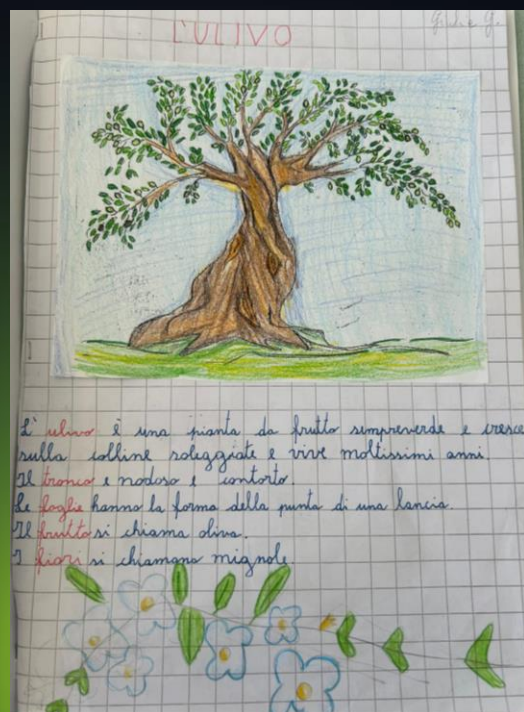 L'ULIVO
L'ulivo è una pianta da frutto sempreverde e cresce
sulla colline soleggiate e vive moltissimi anni.
Il tronco e nodoso e contorto.
Le foglie hanno la forma della punta di una lancia.
Il frutto si chiama oliva.
I fiori si chiamano mignole.